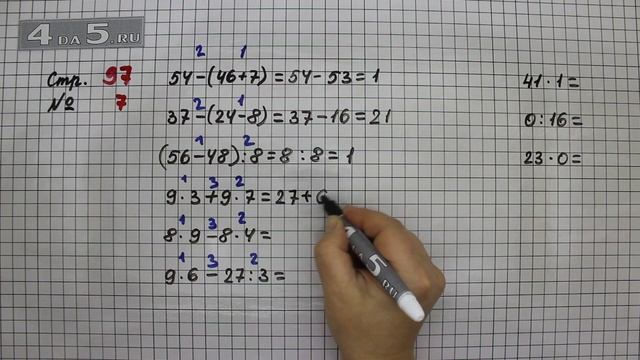 4 DA 5.RU
Стр. 97
№ 7
2 1
54-(46+7)=54-53=1
2 1
37-(24-8)=37-16=21
1 2
(56-48):8=8:8=1
1 3 2
9·3+9·7=27+6
1 3 2
8·9-8·4=
1 3 2
9·6-27:3=
41·1=
0:16=
23·0=
4 DA 5.RU